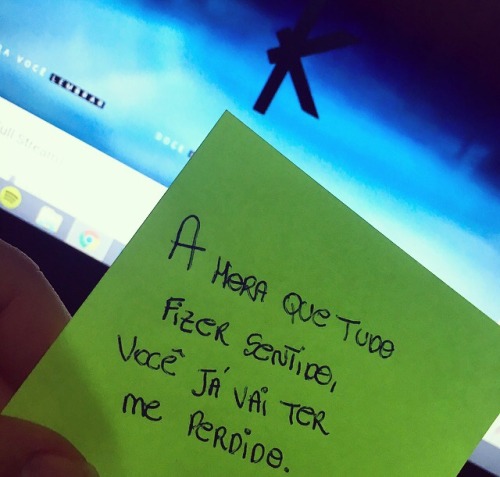 RA VOCÊ LEMBRAR
DOCE
Full Stream
A HORA QUE TUDO
FIZER SENTIDO,
VOCÊ JÁ VAI TER
ME PERDIDO.